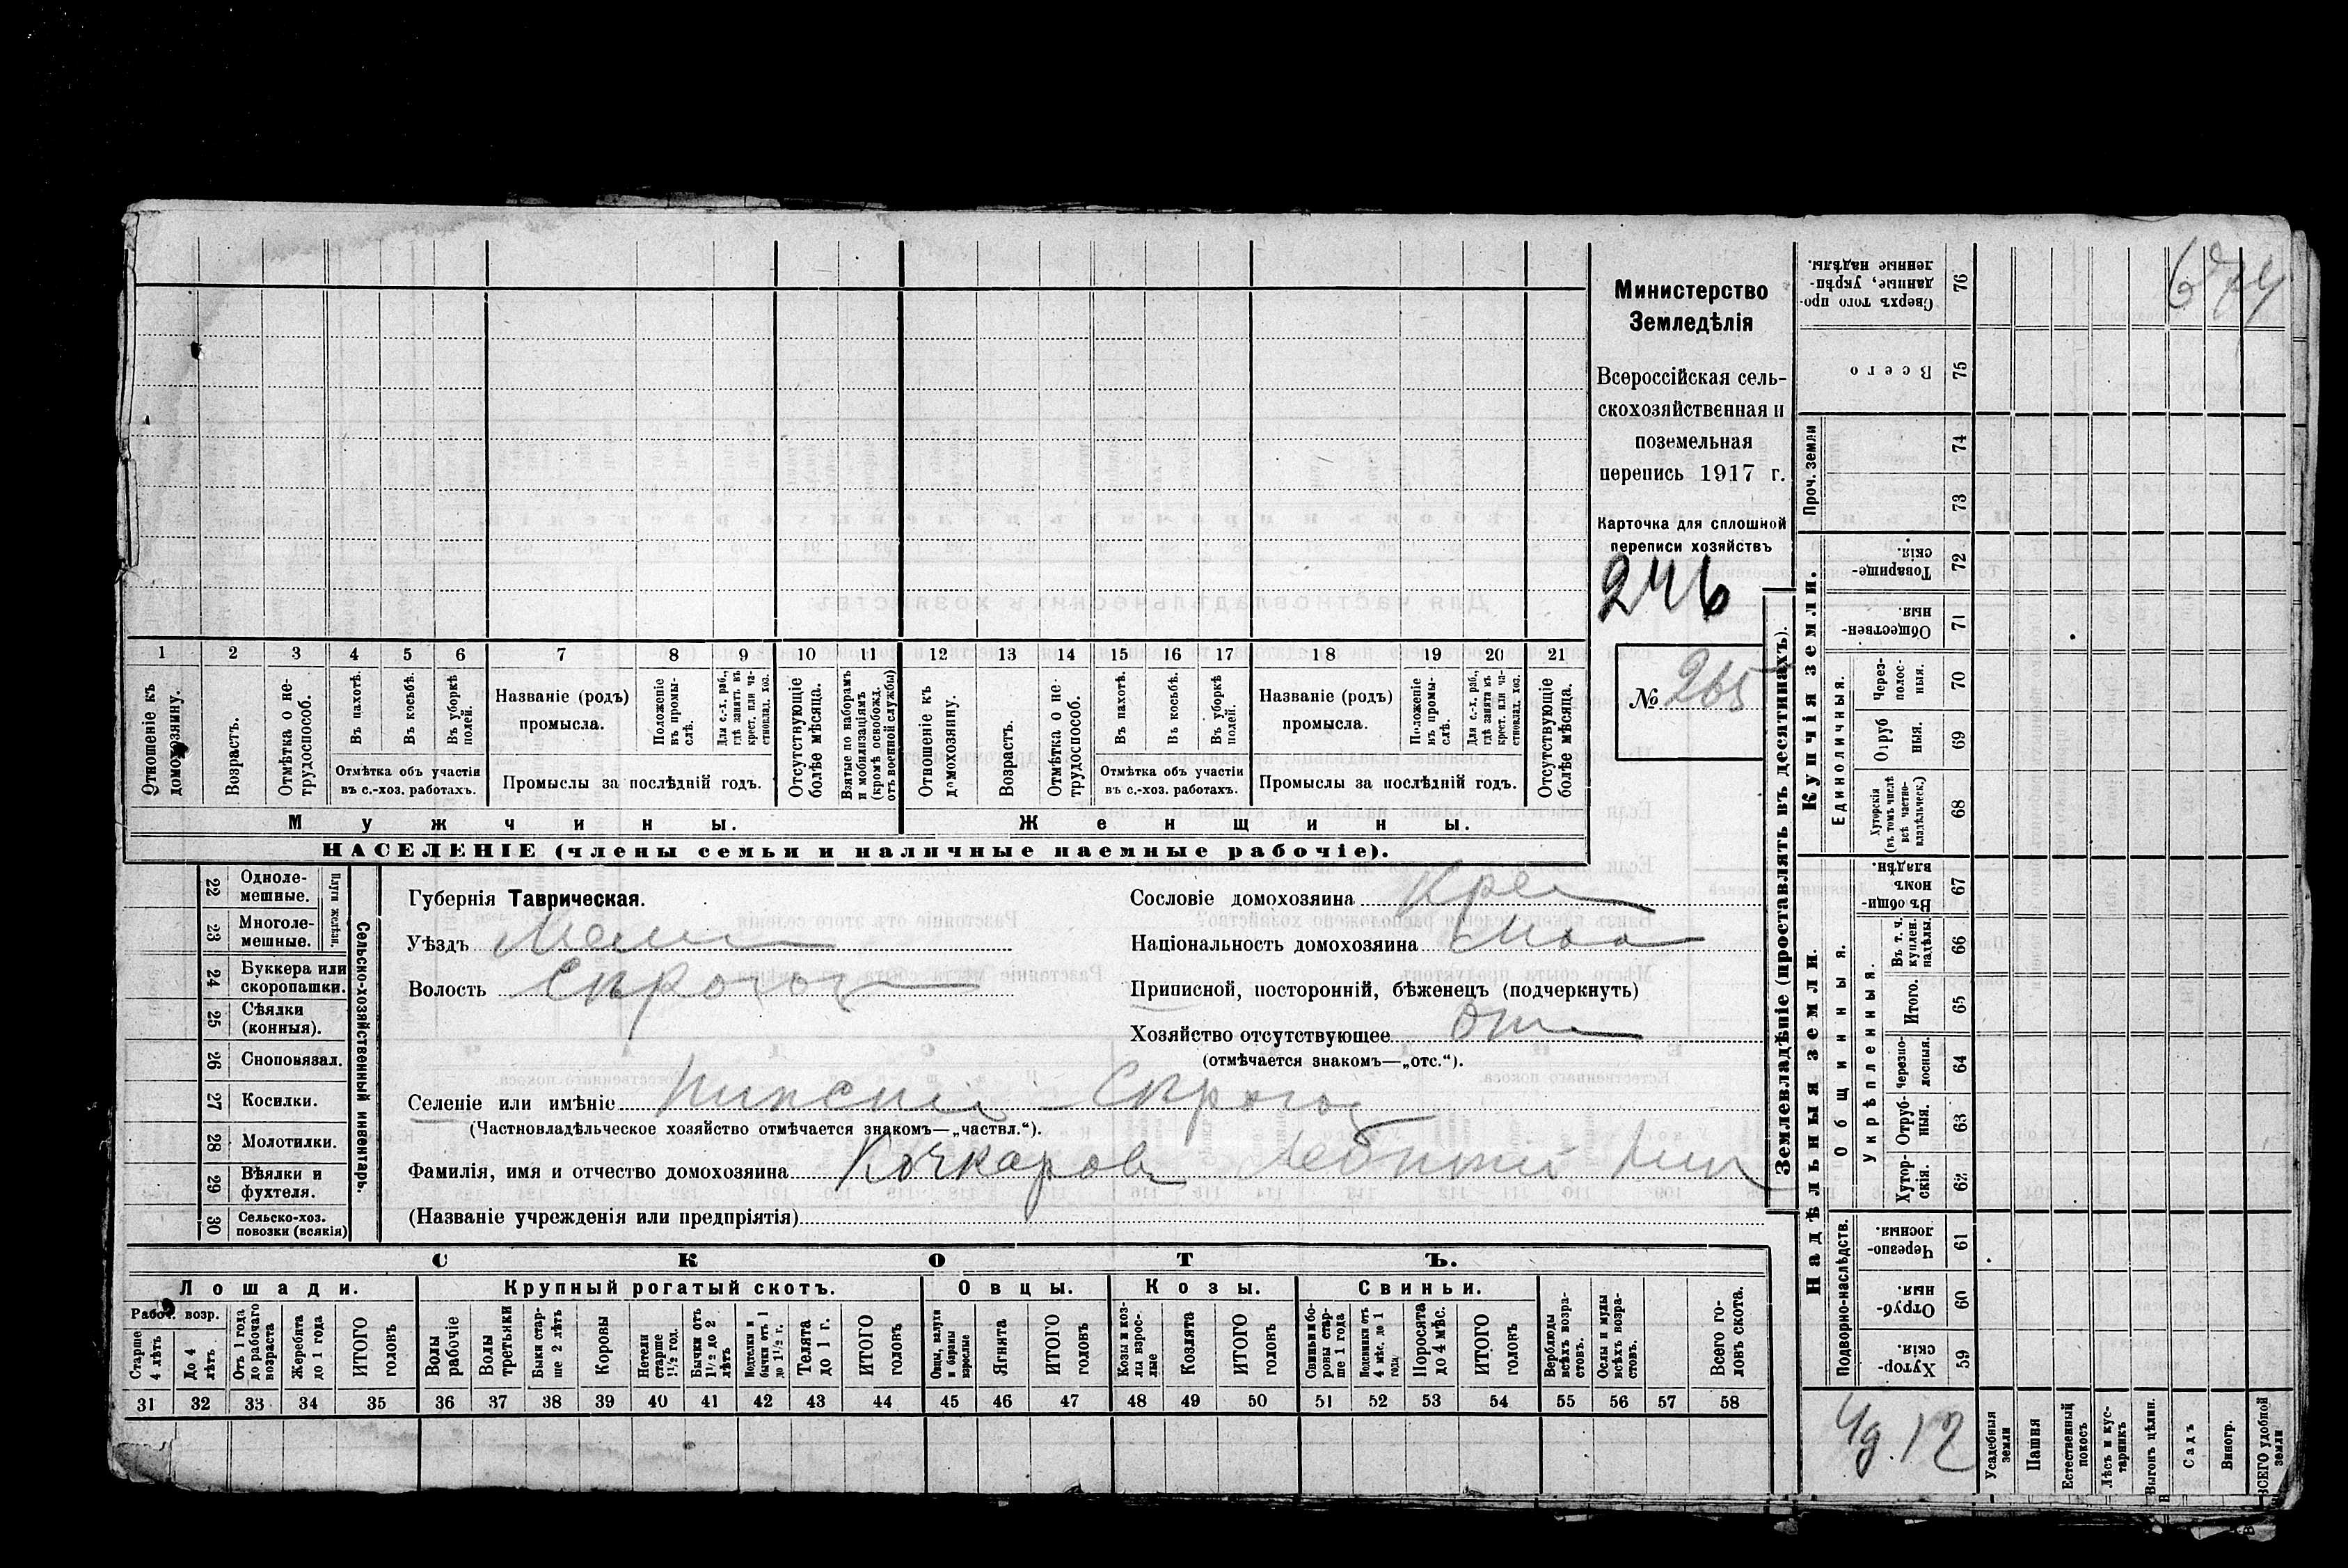 Министерство
Земледѣлія
Всероссійская сель-
скохозяйственная и
поземельная
перепись 1917 г.
Карточка для сплошной
переписи хозяйствъ
246
№ 265
1 2 3 4 5 6 7 8 9 10 11 12 13 14 15 16 17 18 19 20 21
Отношеніе къ домохозяину.
Возрастъ.
Отмѣтка о не-трудоспособ.
Въ пахотѣ.
Въ косьбѣ.
Въ уборкѣ полей.
Отмѣтка объ участіи
въ с.-хоз. работахъ.
Названіе (родъ)
промысла.
Положеніе въ промы-слѣ.
Для с.-х. раб., гдѣ занятъ въ крест. или ча-стновлад. хоз.
Промыслы за послѣдній годъ.
Отсутствующіе болѣе мѣсяца.
Взятые по наборамъ и мобилизаціямъ (кромѣ освобожд. отъ военной службы)
Отношеніе къ домохозяину.
Возрастъ.
Отмѣтка о не-трудоспособ.
Въ пахотѣ.
Въ косьбѣ.
Въ уборкѣ полей.
Отмѣтка объ участіи
въ с.-хоз. работахъ.
Названіе (родъ)
промысла.
Положеніе въ промы-слѣ.
Для с.-х. раб., гдѣ занятъ въ крест. или ча-стновлад. хоз.
Промыслы за послѣдній годъ.
Отсутствующіе болѣе мѣсяца.
Мужчины.
Женщины.
НАСЕЛЕНІЕ (члены семьи и наличные наемные рабочіе).
22 Одноле-мешные.
23 Многоле-мешные.
Плуги желѣзн.
24 Буккера или скоропашки.
25 Сѣялки (конныя).
26 Сноповязал.
27 Косилки.
28 Молотилки.
29 Вѣялки и фухтеля.
30 Сельско-хоз. повозки (всякія)
Сельско-хозяйственный инвентарь.
Губернія Таврическая.
Уѣздъ
Волость
Сословіе домохозяина Кре
Національность домохозяина
Приписной, посторонній, бѣженецъ (подчеркнуть)
Хозяйство отсутствующее
(отмѣчается знакомъ—„отс.“).
Селеніе или имѣніе
(Частновладѣльческое хозяйство отмѣчается знакомъ—„частвл.“).
Фамилія, имя и отчество домохозяина Кочкаров
(Названіе учрежденія или предпріятія)
СКОТЪ.
Лошади.
Крупный рогатый скотъ.
Овцы.
Козы.
Свиньи.
Рабоч. возр.
Старше 4 лѣтъ
До 4 лѣтъ
Отъ 1 года до рабочаго возраста
Жеребята до 1 года
ИТОГО головъ
Волы рабочіе
Волы третьяки
Быки стар-ше 2 лѣтъ
Коровы
Нетели старше 1½ год.
Бычки отъ 1½ до 2 лѣтъ
Подтелки и бычки отъ 1 до 1½ г.
Телята до 1 г.
ИТОГО головъ
Овцы, валухи и бараны взрослые
Ягнята
ИТОГО головъ
Козы и коз-лы взрос-лые
Козлята
ИТОГО головъ
Свиньи и бо-ровы стар-ше 1 года
Подсвинки отъ 4 мѣс. до 1 года
Поросята до 4 мѣс.
ИТОГО головъ
Верблюды всѣхъ возра-стовъ.
Ослы и мулы всѣхъ возра-стовъ.
Всего го-ловъ скота.
31 32 33 34 35 36 37 38 39 40 41 42 43 44 45 46 47 48 49 50 51 52 53 54 55 56 57 58
Землевладѣніе (проставлять въ десятинахъ).
Купчія земли.
Надѣльныя земли.
Сверхъ того про-данные, укрѣп-ленные надѣлы. 76
Всего 75
Проч. земли
74
73
Товарище-скія. 72
Обществен-ныя. 71
Единоличныя.
Через-полос-ныя. 70
Отруб-ныя. 69
Хуторскія (въ томъ числѣ всѣ частно-владѣльческ.) 68
Въ общин-номъ владѣн. 67
Общинныя.
Укрѣпленныя.
Въ т. ч. куплен. надѣлы. 66
Итого. 65
Черезпо-лосныя. 64
Отруб-ныя. 63
Хутор-скія. 62
Подворно-наслѣдств.
Черезпо-лосныя. 61
Отруб-ныя. 60
Хутор-скія. 59
Усадебныя земли
Пашня
Естественный покосъ
Лѣсъ и кус-тарникъ
Выгонъ цѣлин.
Садъ
Виногр.
ВСЕГО удобной земли